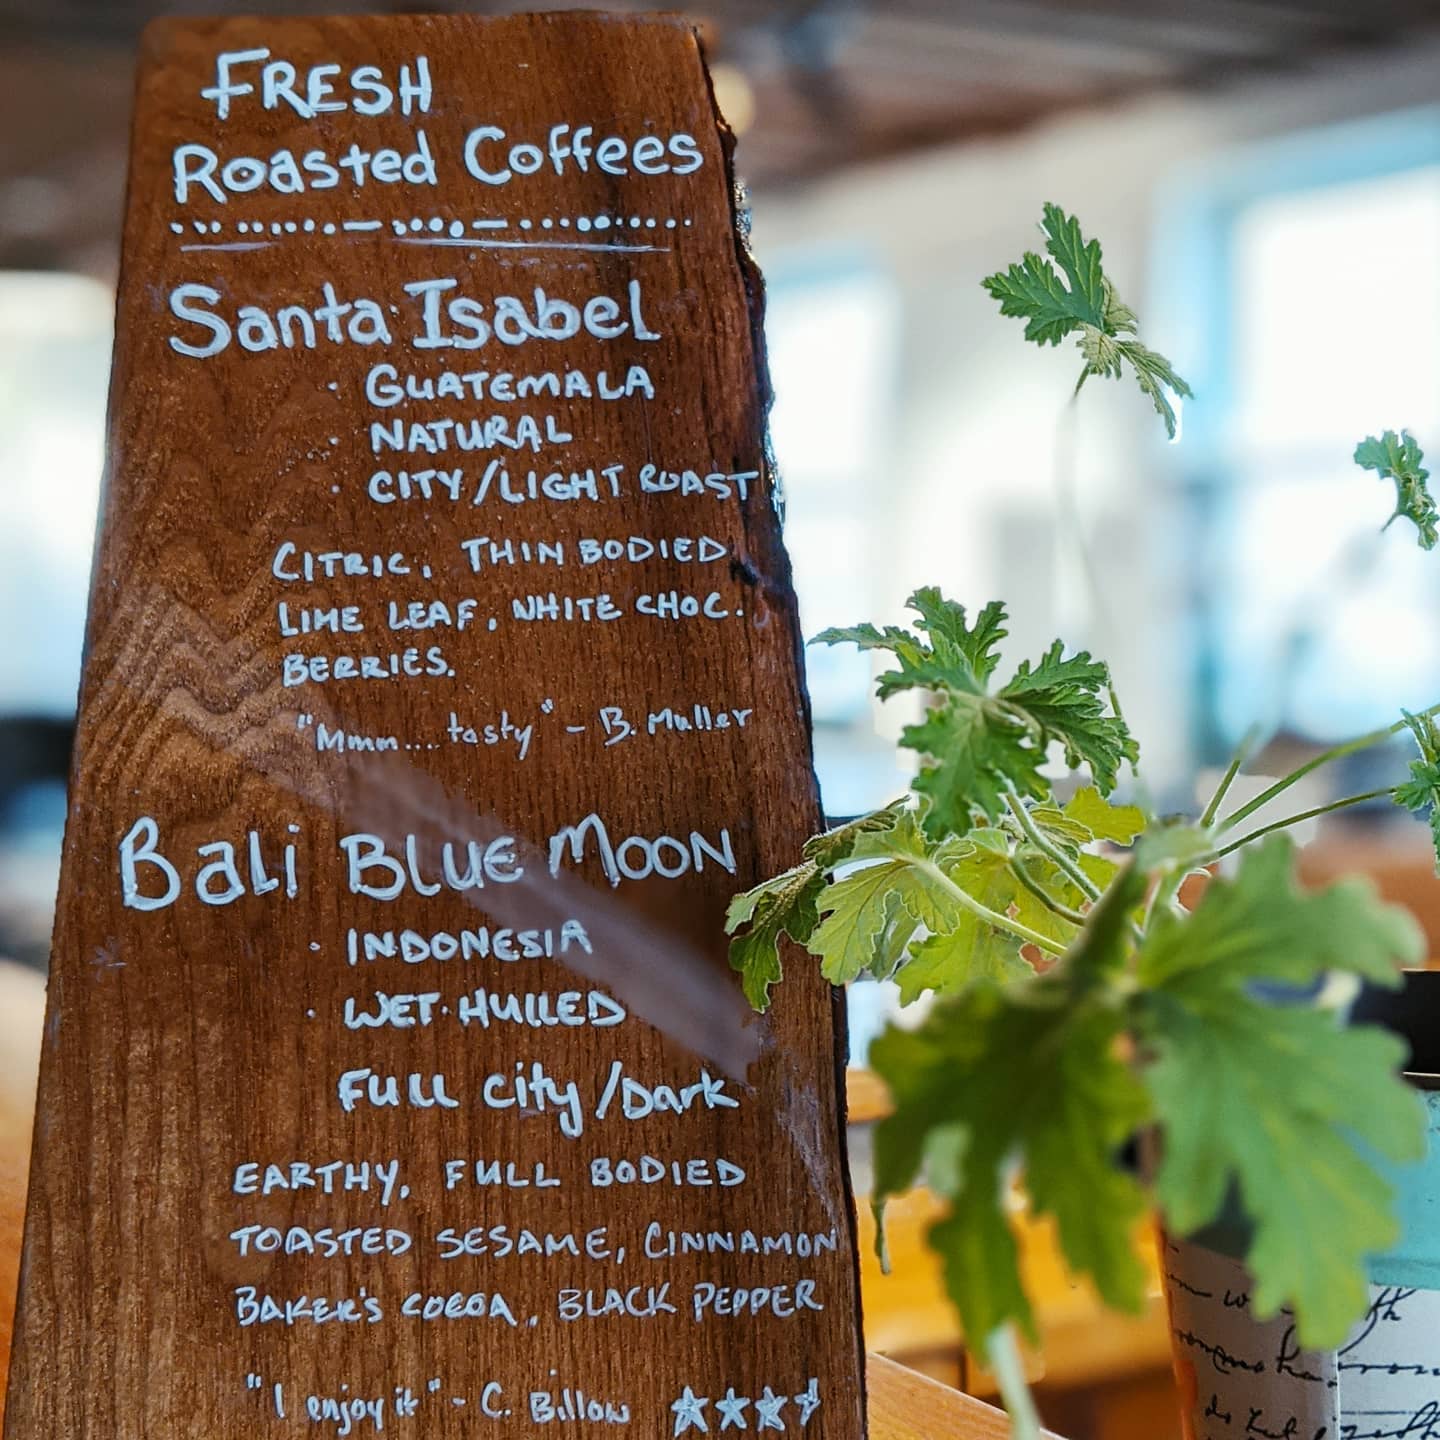 FRESH
Roasted Coffees
Santa Isabel
· GUATEMALA
· NATURAL
· CITY/LIGHT ROAST
CITRIC, THIN BODIED
LIME LEAF, WHITE CHOC.
BERRIES.
"Mmm.... tasty" - B. Muller
Bali BLUE MOON
· INDONESIA
· WET-HULLED
FULL City/Dark
EARTHY, FULL BODIED
TOASTED SESAME, CINNAMON
BAKER'S COCOA, BLACK PEPPER
"I enjoy it" - C. Billow